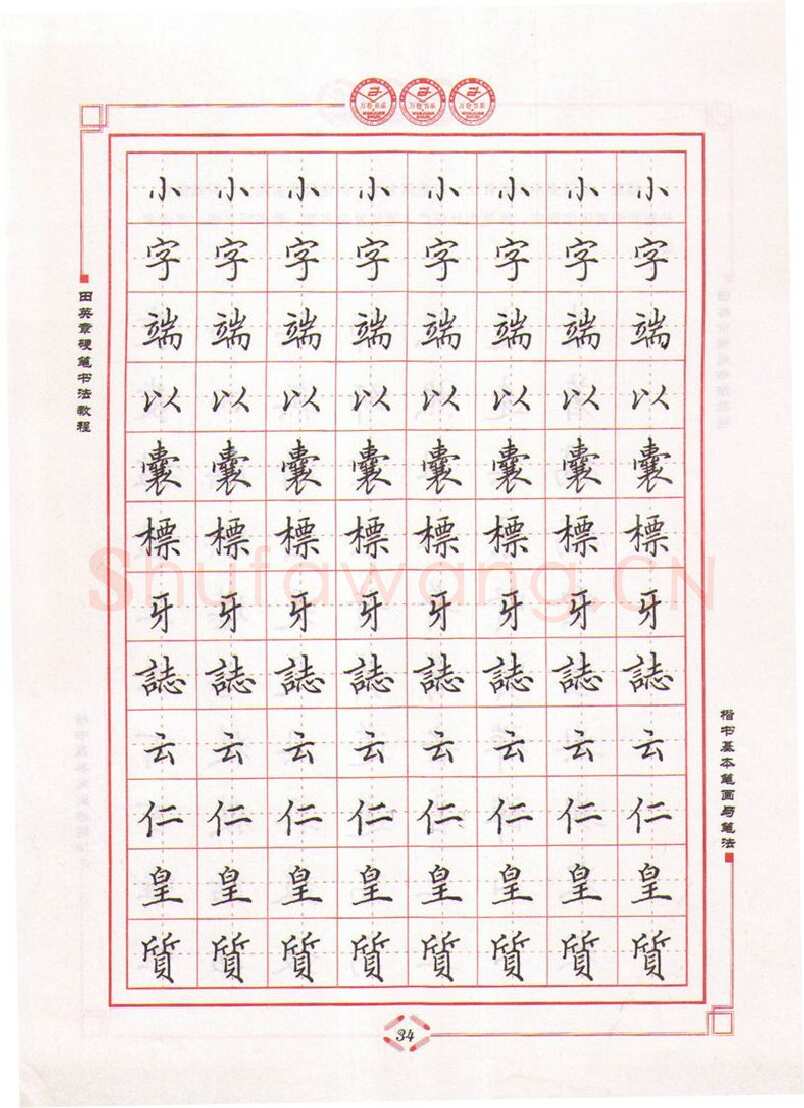 田英章硬笔书法教程
小 小 小 小 小 小 小 小
字 字 字 字 字 字 字 字
端 端 端 端 端 端 端 端
以 以 以 以 以 以 以 以
囊 囊 囊 囊 囊 囊 囊 囊
標 標 標 標 標 標 標 標
Shufawang.CN
牙 牙 牙 牙 牙 牙 牙 牙
誌 誌 誌 誌 誌 誌 誌 誌
云 云 云 云 云 云 云 云
仁 仁 仁 仁 仁 仁 仁 仁
皇 皇 皇 皇 皇 皇 皇 皇
質 質 質 質 質 質 質 質
楷书基本笔画与笔法
34